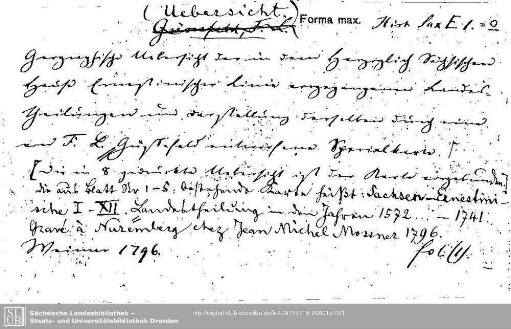 (Uebersicht.)
Güssefeld, F. L. Forma max. Hist. Sax E 1.
Geographische Uebersicht der in dem Herzoglich Sächsischen
Hause Ernestinischer Linie ergangenen Landes
theilungen und Darstellung derselben durch eine
von F. L. Güssefeld entworfene Specialkarte.
[Die in 8 gedruckte Uebersicht ist der Karte
die aus Blatt Nr 1-5. bestehende Karte heißt: Sachsen-Ernestini-
sche I-XII. Landestheilung in den Jahren 1572 ... - 1741.
Gravé à Nuremberg chez Jean Michel Mossner 1796.
Weimar 1796. fol. (1).
SLUB
Sächsische Landesbibliothek –
Staats- und Universitätsbibliothek Dresden